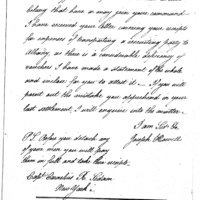 belong that have or may join your command.
I have received your letter covering your receipts
for expenses & transporting a recruiting party to
Albany as there is a considerable deficiency of
vouchers I have made a statement of the whole
and enclose for you to attest it. If you will
point out the mistake you apprehend in your
last settlement I will enquire into the matter.
I am Sir &c.
Joseph Howell
P.S. Before you detach any
of your men you will pay
them in full and take their receipts.
Capt Cornelius R. Sedam
New York.